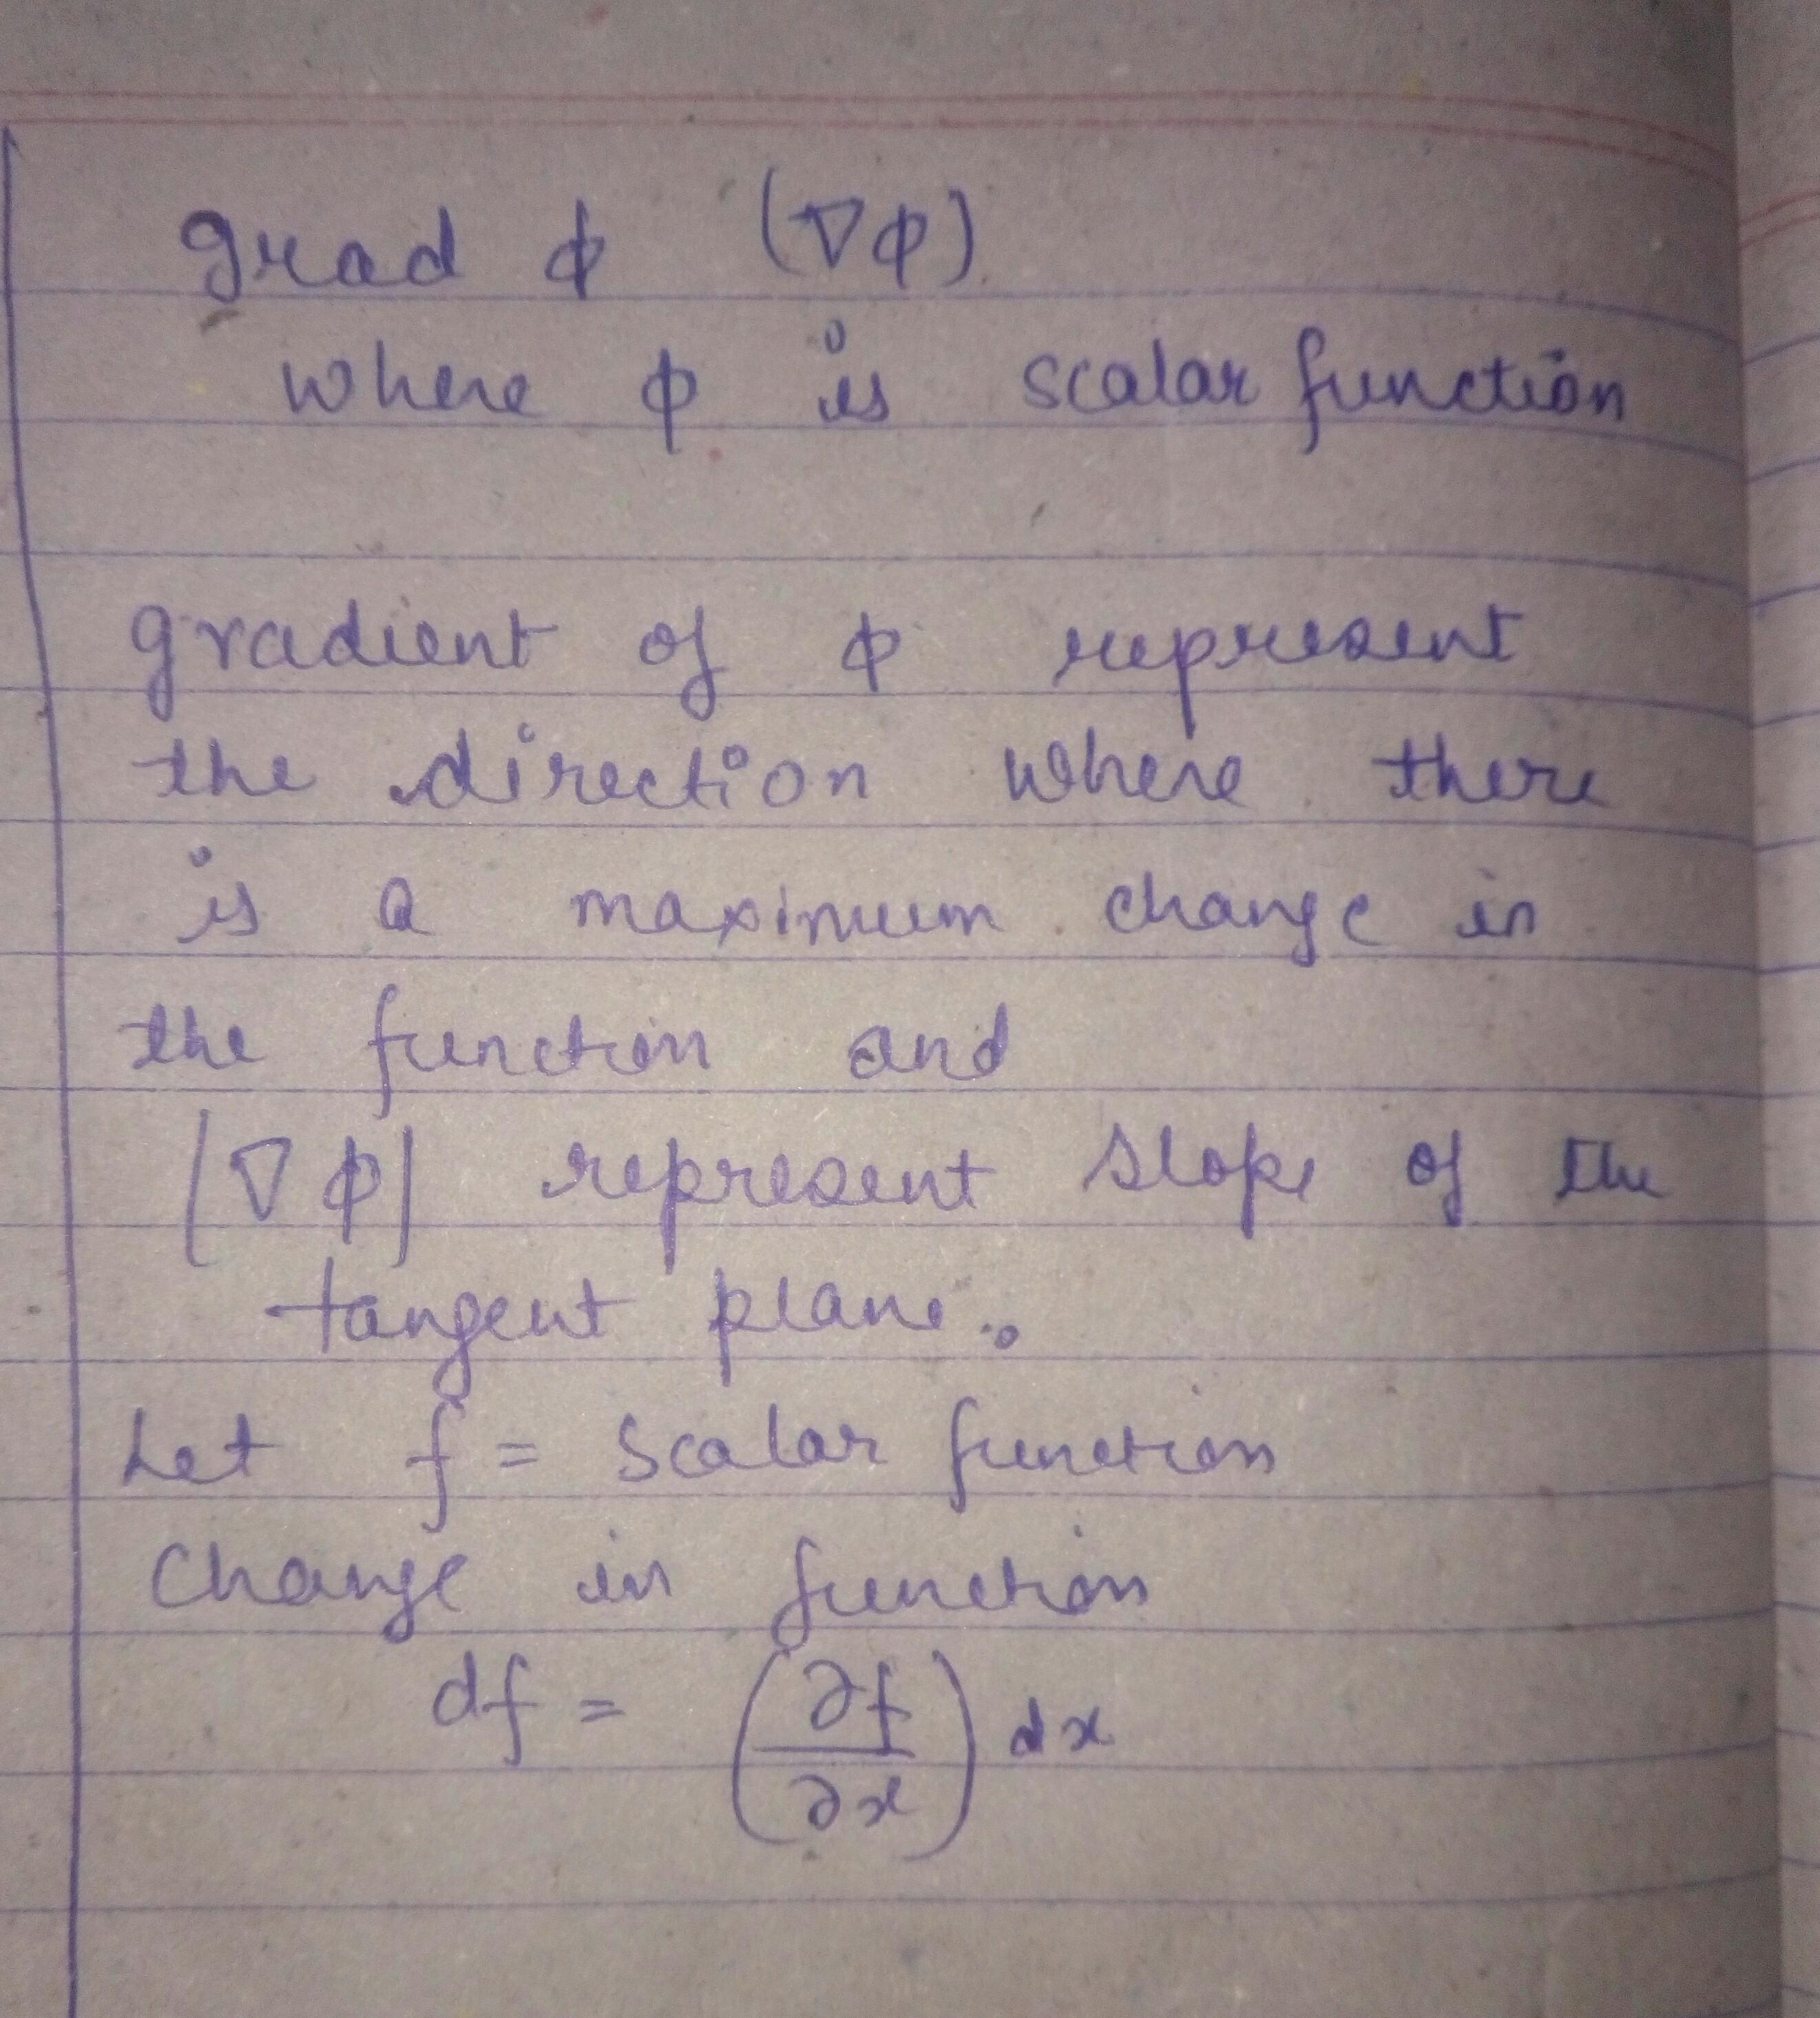 grad ϕ (∇ϕ)
where ϕ is scalar function
gradient of ϕ represent
the direction where there
is a maximum change in
the function and
|∇ϕ| represent slope of the
tangent plane.
Let f = scalar function
Change in function
df = (∂f/∂x) dx